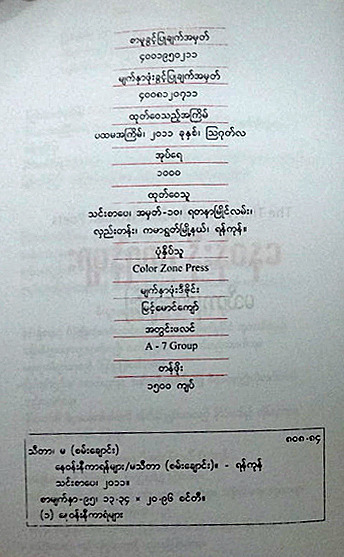 စာမူခွင့်ပြုချက်အမှတ်
၄၀၀၁၉၅၀၂၁၁
မျက်နှာဖုံးခွင့်ပြုချက်အမှတ်
၄၀၀၈၁၂၀၇၁၁
ထုတ်ဝေသည့်အကြိမ်
ပထမအကြိမ်၊ ၂၀၁၁ ခုနှစ်၊ ဩဂုတ်လ
အုပ်ရေ
၁၀၀၀
ထုတ်ဝေသူ
သင်းစာပေ၊ အမှတ်-၁၀၊ ရတနာမြိုင်လမ်း၊
လှည်းတန်း၊ ကမာရွတ်မြို့နယ်၊ ရန်ကုန်။
ပုံနှိပ်သူ
Color Zone Press
မျက်နှာဖုံးဒီဇိုင်း
မြင့်မောင်ကျော်
အတွင်းဖလင်
A - 7 Group
တန်ဖိုး
၁၅၀၀ ကျပ်
၈၀၈.၈၄
သီတာ၊ မ (စမ်းချောင်း)
နေဝန်းနီကာရန်များ/မသီတာ (စမ်းချောင်း)။ - ရန်ကုန်
သင်းစာပေ၊ ၂၀၁၁။
စာမျက်နှာ-၉၅၊ ၁၃.၃၄ × ၂၀.၉၆ စင်တီ။
(၁) နေဝန်းနီကာရံများ